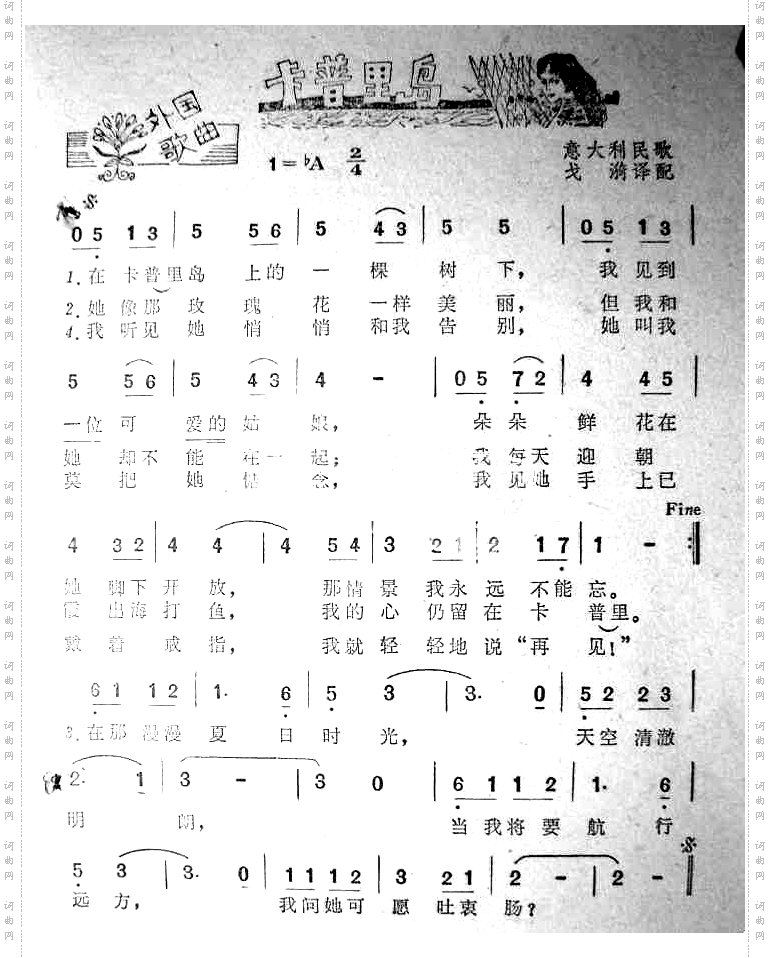 卡普里岛
外国
歌曲
1=♭A 2/4
意大利民歌
戈漪译配
0 5 1 3 | 5 5 6 | 5 4 3 | 5 5 | 0 5 1 3 |
1.在卡普里岛上的一棵树下，我见到
2.她像那玫瑰花一样美丽，但我和
4.我听见她悄悄和我告别，她叫我
5 5 6 | 5 4 3 | 4 - | 0 5 7 2 | 4 4 5 |
一位可爱的姑娘，朵朵鲜花在
她却不能在一起；我每天迎朝
莫把她惦念，我见她手上已
Fine
4 3 2 | 4 4 | 4 5 4 | 3 2 1 | 2 1 7 | 1 - :||
她脚下开放，那情景我永远不能忘。
霞出海打鱼，我的心仍留在卡普里。
戴着戒指，我就轻轻地说“再见！”
6 1 1 2 | 1· 6 | 5 3 | 3· 0 | 5 2 2 3 |
3.在那漫漫夏日时光，天空清澈
2· 1 | 3 - | 3 0 | 6 1 1 2 | 1· 6 |
明朗，当我将要航行
5 3 | 3· 0 | 1 1 1 2 | 3 2 1 | 2 - | 2 - ||
远方，我问她可愿吐衷肠？
词曲网